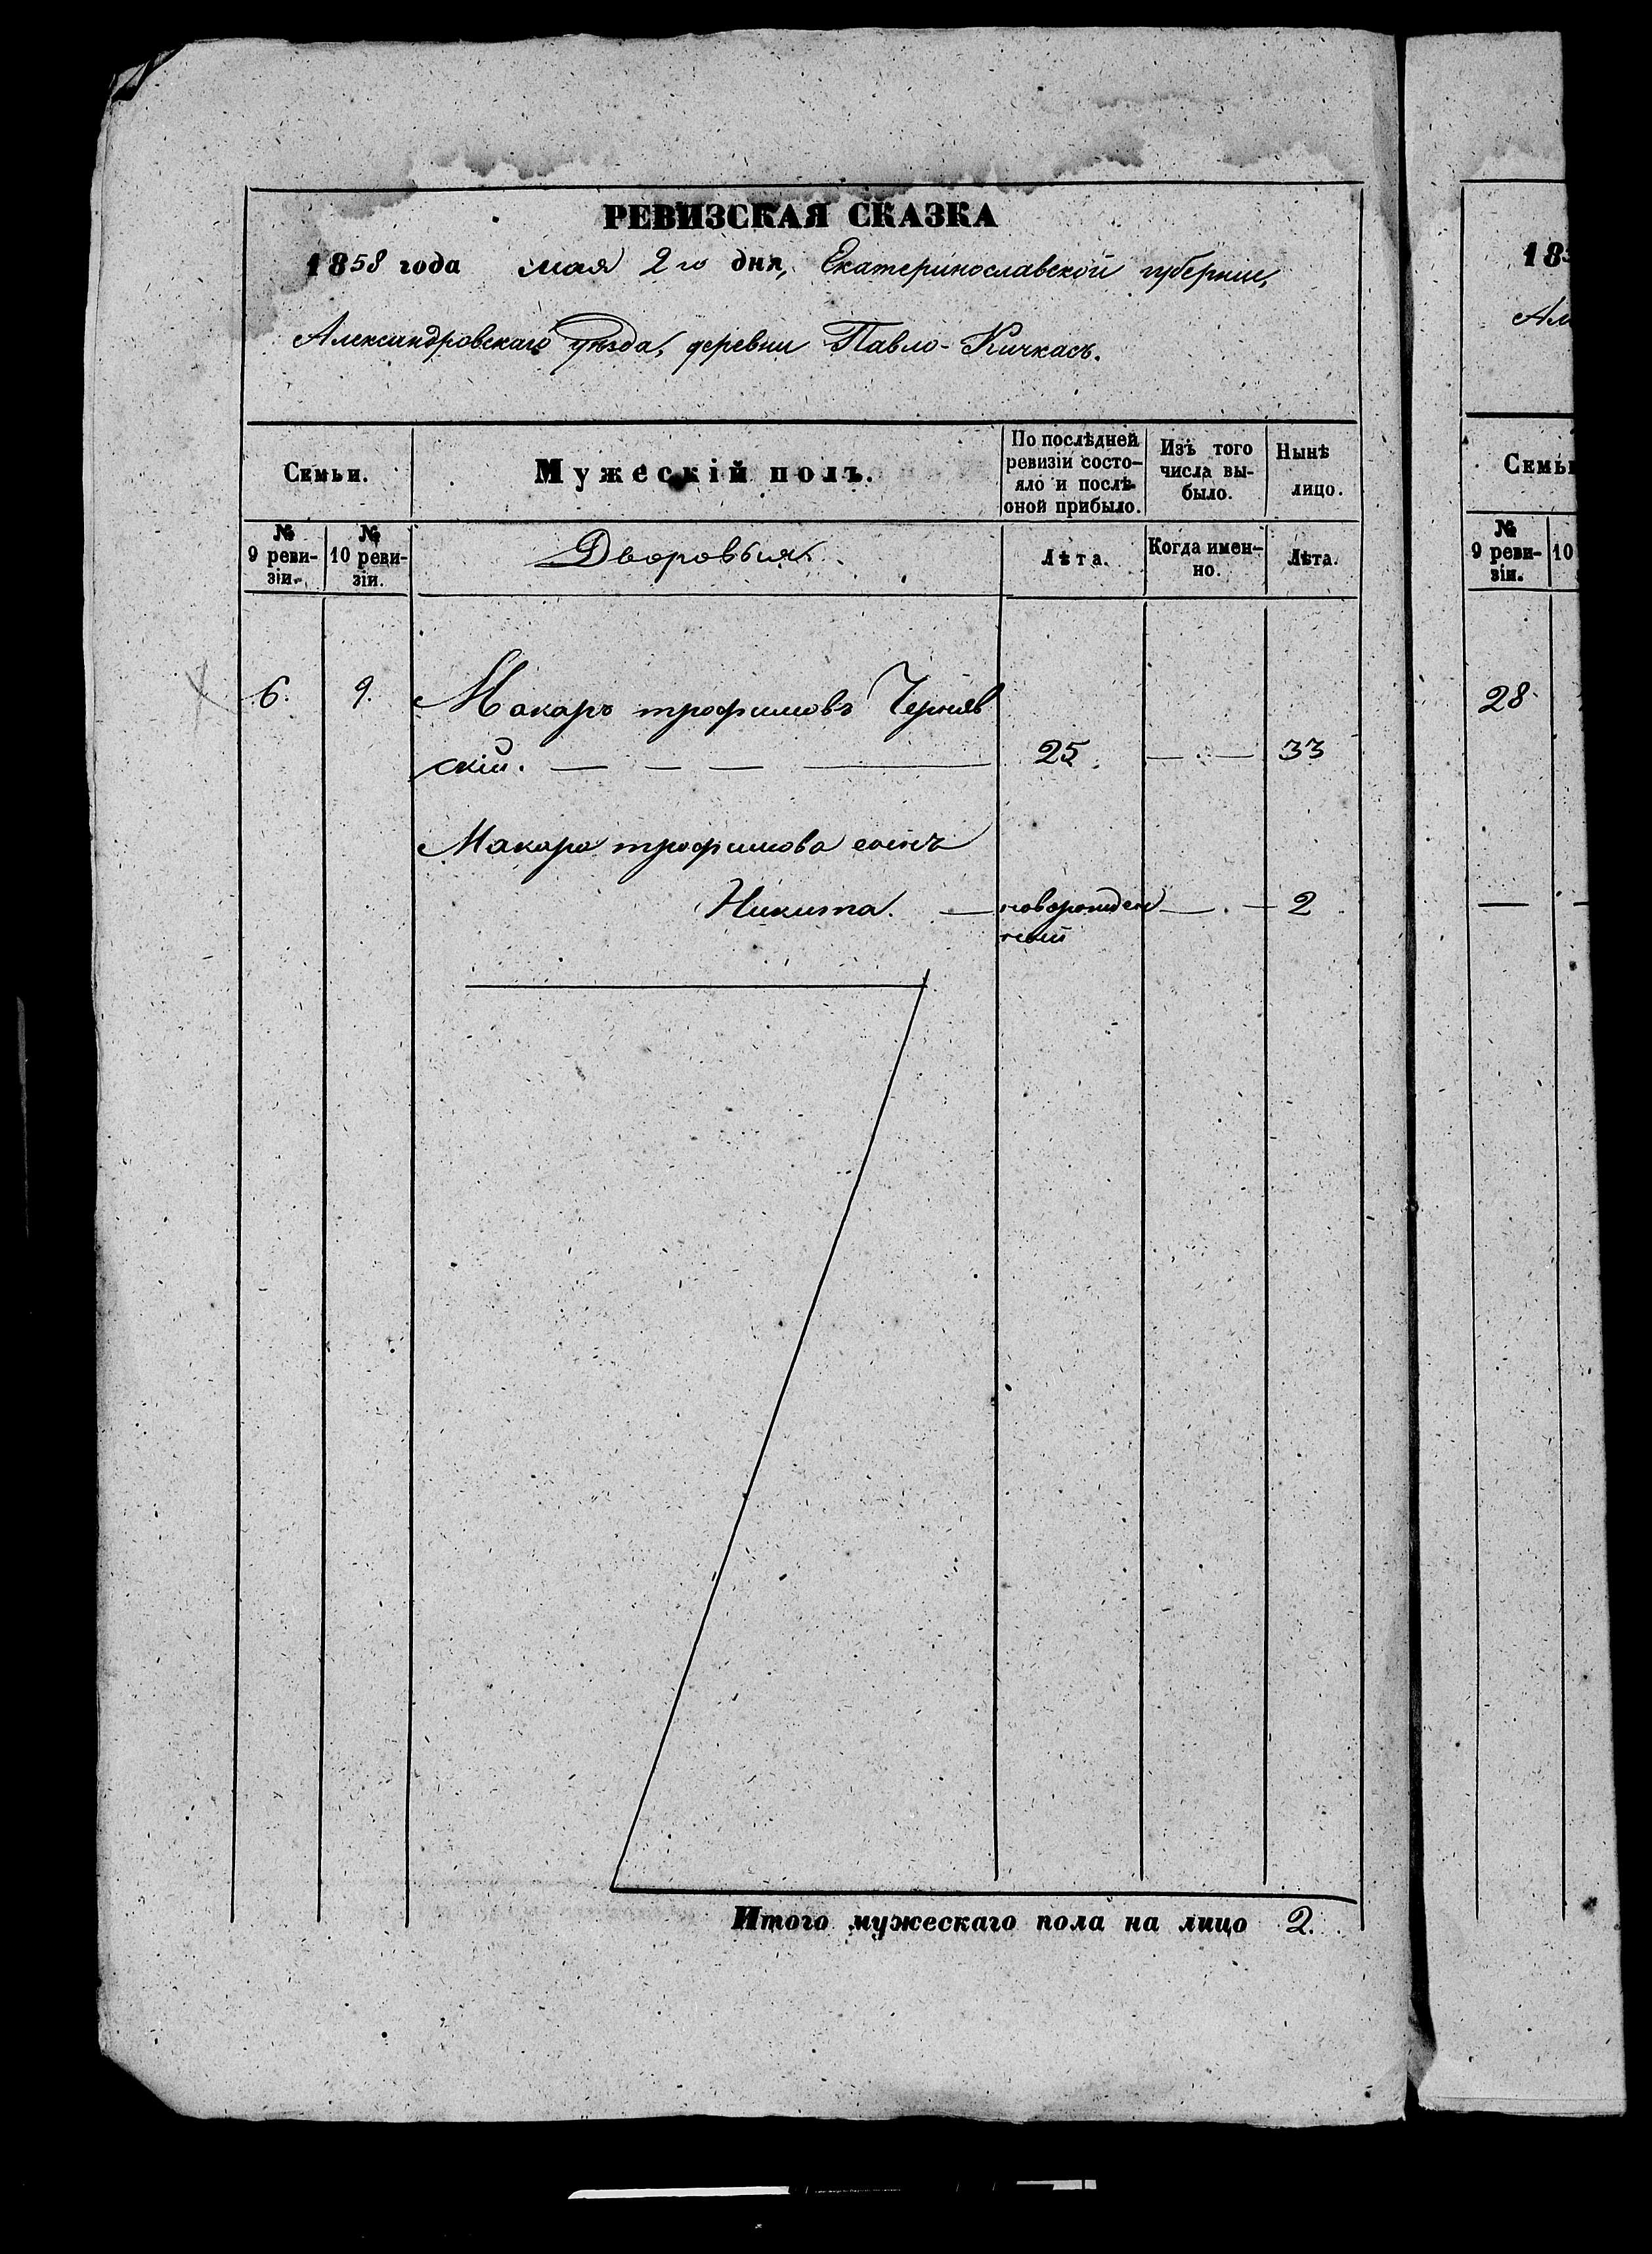 РЕВИЗСКАЯ СКАЗКА
1858 года мая 2го дня, Екатеринославской губернии,
Александровскаго уѣзда, деревни Павло-Кичкасъ.
Семьи.
Мужескій полъ.
По послѣдней
ревизіи состо-
яло и послѣ
оной прибыло.
Изъ того
числа вы-
было.
Нынѣ
лицо.
№
9 реви-
зіи.
№
10 реви-
зіи.
Дворовыя.
Лѣта.
Когда имен-
но.
Лѣта.
6. 9. Макаръ трофимовъ Черняв
скій. 25. 33
Макара трофимова сынъ
Никита. новорожден 2
ный
Итого мужескаго пола на лицо 2.
18
Ал
Семьи
№
9 реви-
зіи.
10
28